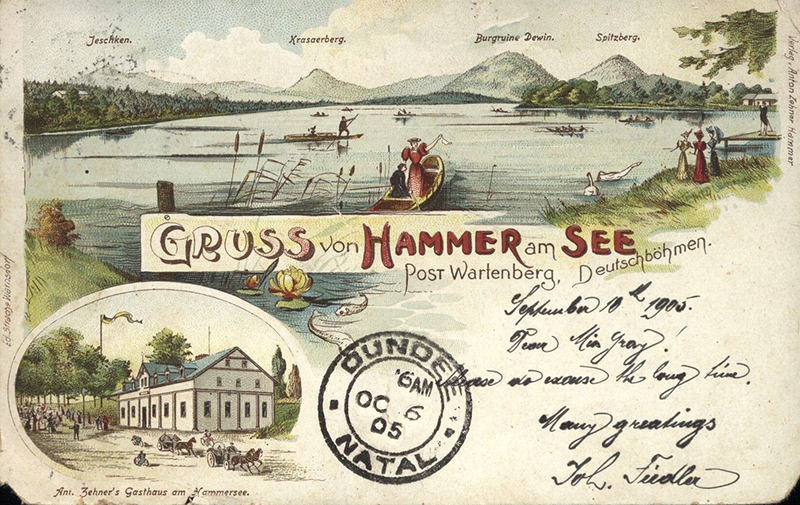 Jeschken.
Krasaerberg.
Burgruine Dewin.
Spitzberg.
Verlag. Anton Zehner Hammer
GRUSS von HAMMER am SEE
Post Wartenberg, Deutschböhmen.
September 10th 1905.
Dear Miss Gray!
Please do excuse the long time.
Many greatings
Joh. Fiedler
DUNDEE
6AM
OC 6
05
NATAL
Ant. Zehner's Gasthaus am Hammersee.